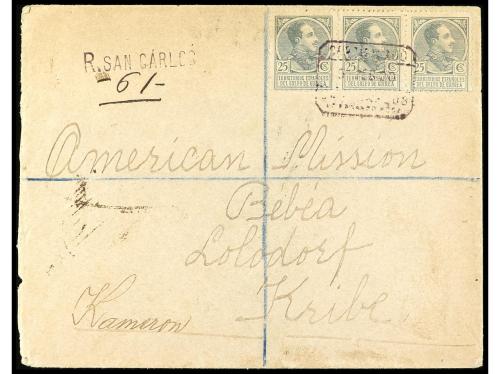 R. SAN CÁRLOS
61-
25 Cs 25 Cs 25 Cs
TERRITORIOS ESPAÑOLES TERRITORIOS ESPAÑOLES TERRITORIOS ESPAÑOLES
DEL GOLFO DE GUINEA DEL GOLFO DE GUINEA DEL GOLFO DE GUINEA
American Mission
Bébéa
Lolodorf
Kribe
Kameron